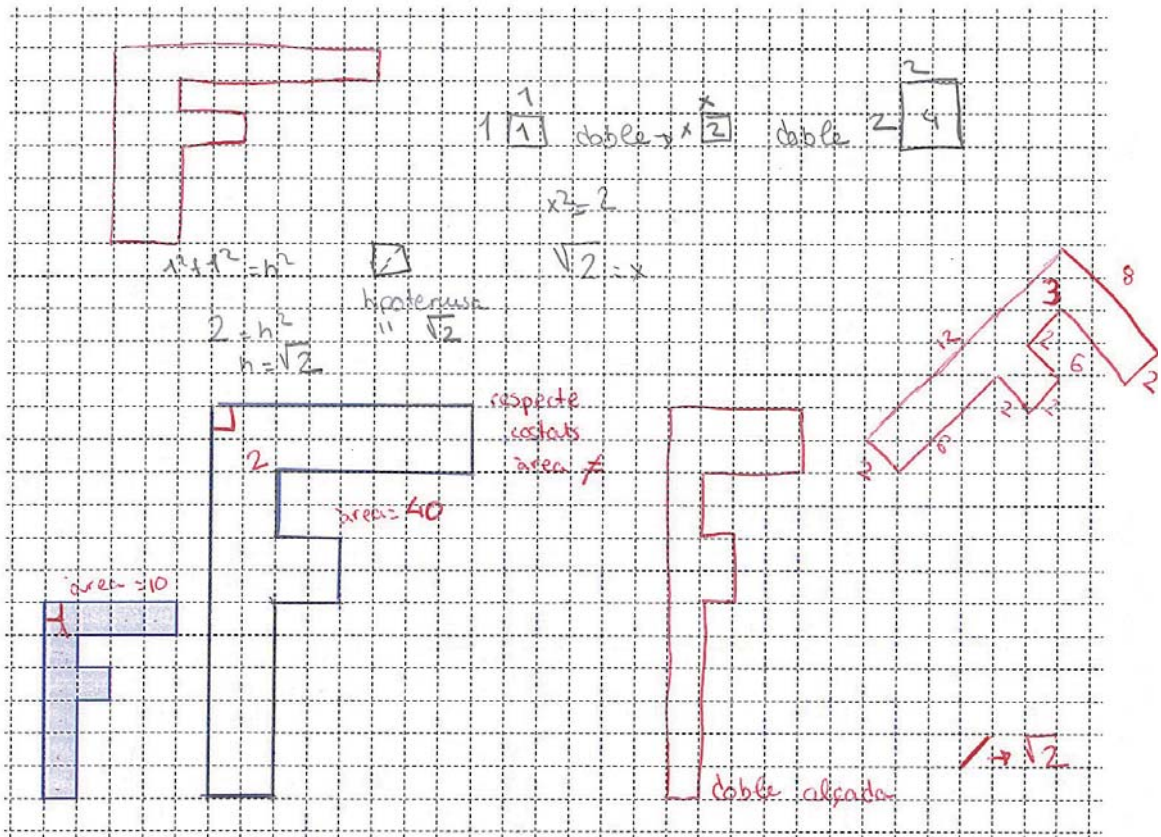 1
1 1 doble → x
x
2
doble
2
2 4
x² = 2
√2 = x
1² + 1² = h²
2 = h²
h = √2
hipotenusa
" √2
8
3
12
2
6
2
2
2
6
2
respecte
costats
àrea ≠
2
àrea = 40
àrea = 10
1
doble alçada
/ → √2